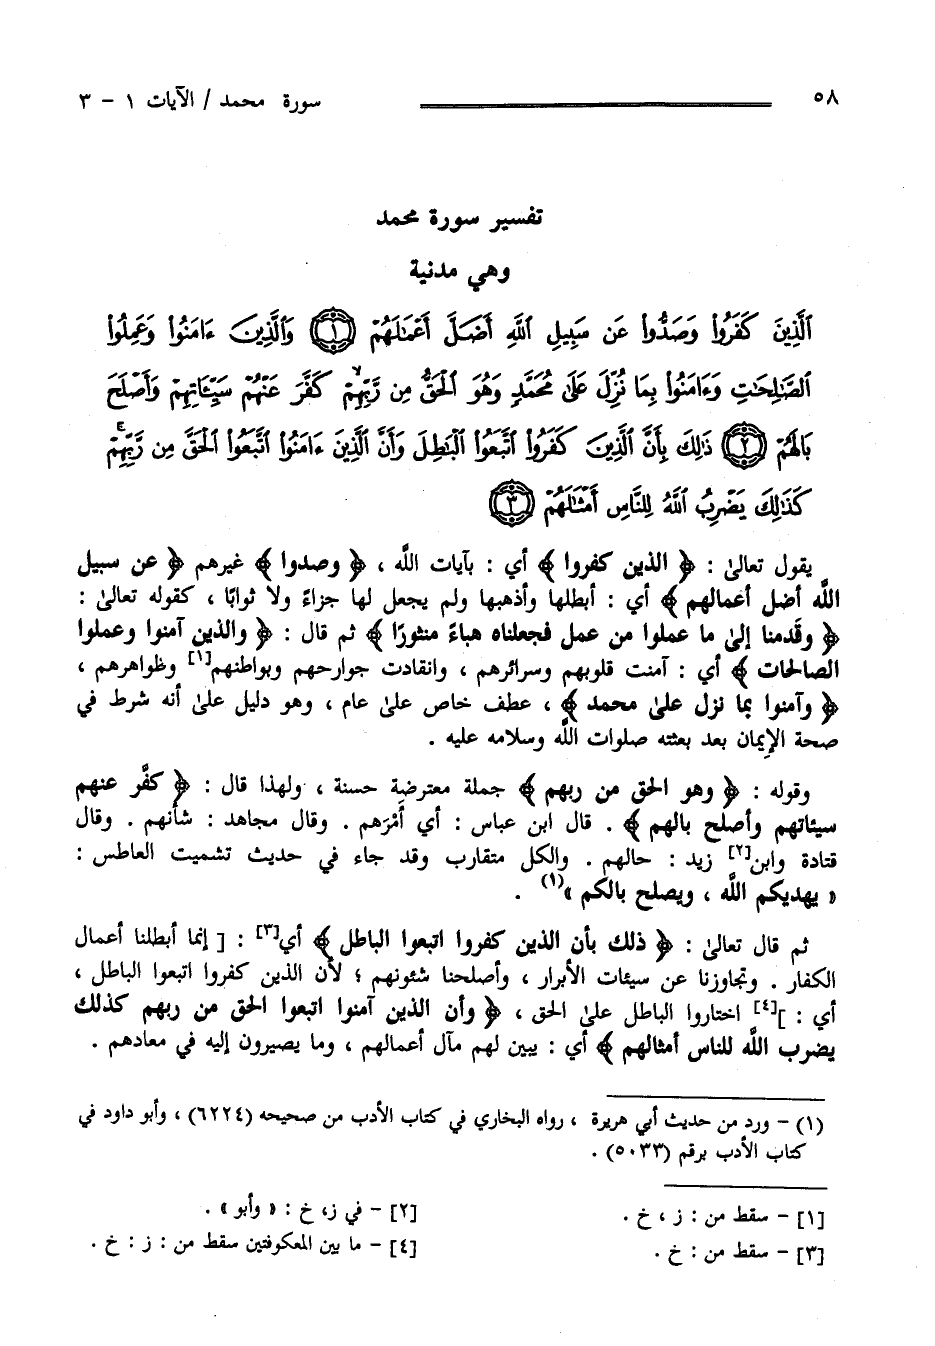 ٥٨ سورة محمد / الآيات ١ - ٣
تفسير سورة محمد
وهي مدنية
ٱلَّذِينَ كَفَرُوا۟ وَصَدُّوا۟ عَن سَبِيلِ ٱللَّهِ أَضَلَّ أَعْمَٰلَهُمْ ١ وَٱلَّذِينَ ءَامَنُوا۟ وَعَمِلُوا۟
ٱلصَّٰلِحَٰتِ وَءَامَنُوا۟ بِمَا نُزِّلَ عَلَىٰ مُحَمَّدٍ وَهُوَ ٱلْحَقُّ مِن رَّبِّهِمْ ۙ كَفَّرَ عَنْهُمْ سَيِّـَٔاتِهِمْ وَأَصْلَحَ
بَالَهُمْ ٢ ذَٰلِكَ بِأَنَّ ٱلَّذِينَ كَفَرُوا۟ ٱتَّبَعُوا۟ ٱلْبَٰطِلَ وَأَنَّ ٱلَّذِينَ ءَامَنُوا۟ ٱتَّبَعُوا۟ ٱلْحَقَّ مِن رَّبِّهِمْ ۚ
كَذَٰلِكَ يَضْرِبُ ٱللَّهُ لِلنَّاسِ أَمْثَٰلَهُمْ ٣
يقول تعالىٰ : ﴿ الذين كفروا ﴾ أي : بآيات اللَّه ، ﴿ وصدوا ﴾ غيرهم ﴿ عن سبيل
اللَّه أضل أعمالهم ﴾ أي : أبطلها وأذهبها ولم يجعل لها جزاءً ولا ثوابًا ، كقوله تعالىٰ :
﴿ وقَدمنا إلىٰ ما عملوا من عمل فجعلناه هباءً منثورًا ﴾ ثم قال : ﴿ والذين آمنوا وعملوا
الصالحات ﴾ أي : آمنت قلوبهم وسرائرهم ، وانقادت جوارحهم وبواطنهم[١] وظواهرهم ،
﴿ وآمنوا بما نزل علىٰ محمد ﴾ ، عطف خاص علىٰ عام ، وهو دليل علىٰ أنه شرط في
صحة الإيمان بعد بعثته صلوات اللَّه وسلامه عليه .
وقوله : ﴿ وهو الحق من ربهم ﴾ جملة معترضة حسنة ، ولهذا قال : ﴿ كفَّر عنهم
سيئاتهم وأصلح بالهم ﴾ . قال ابن عباس : أي أَمْرَهم . وقال مجاهد : شأنهم . وقال
قتادة وابن[٢] زيد : حالهم . والكل متقارب وقد جاء في حديث تشميت العاطس :
« يهديكم اللَّه ، ويصلح بالكم »(١) .
ثم قال تعالىٰ : ﴿ ذلك بأن الذين كفروا اتبعوا الباطل ﴾ أي[٣] : [ إنما أبطلنا أعمال
الكفار . وتجاوزنا عن سيئات الأبرار ، وأصلحنا شئونهم ؛ لأن الذين كفروا اتبعوا الباطل ،
أي : ][٤] اختاروا الباطل علىٰ الحق ، ﴿ وأن الذين آمنوا اتبعوا الحق من ربهم كذلك
يضرب اللَّه للناس أمثالهم ﴾ أي : يبين لهم مآل أعمالهم ، وما يصيرون إليه في معادهم .
(١) - ورد من حديث أبي هريرة ، رواه البخاري في كتاب الأدب من صحيحه (٦٢٢٤) ، وأبو داود في
كتاب الأدب برقم (٥٠٣٣) .
[١] - سقط من : ز ، خ . [٢] - في ز، خ : « وأبو » .
[٣] - سقط من : خ . [٤] - ما بين المعكوفتين سقط من : ز : خ .